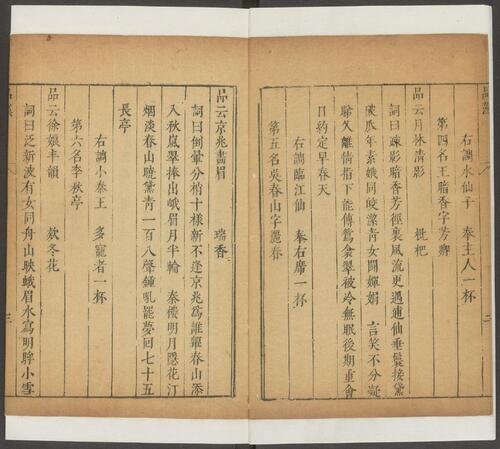 右調水仙子　奉主人一杯
第四名王暗香字芳卿
品云月林清影　枇杷
詞曰疎影暗香芳徑裏風流更遇逋仙垂鬟接黛
破瓜年素娥同皎潔青女鬪嬋娟　言笑不分凝
睇久離情指下能傳鴛衾翠被冷無眠後期重會
日約定早春天
右調臨江仙　奉右席一杯
第五名吳春山字麗春
品云京兆畫眉　瑞香
詞曰倒暈分梢十樣新不逢京兆為誰顰春山添
入秋嵐翠捧出峨眉月半輪　秦樓明月隱花汀
烟淡春山聰黛青一百八聲鍾吼罷夢回七十五
長亭
右調小秦王　多寵者一杯
第六名李秋亭
品云徐娘丰韻　欵冬花
詞曰泛新波有女同舟山映蛾眉水寫明眸小雪
二
三